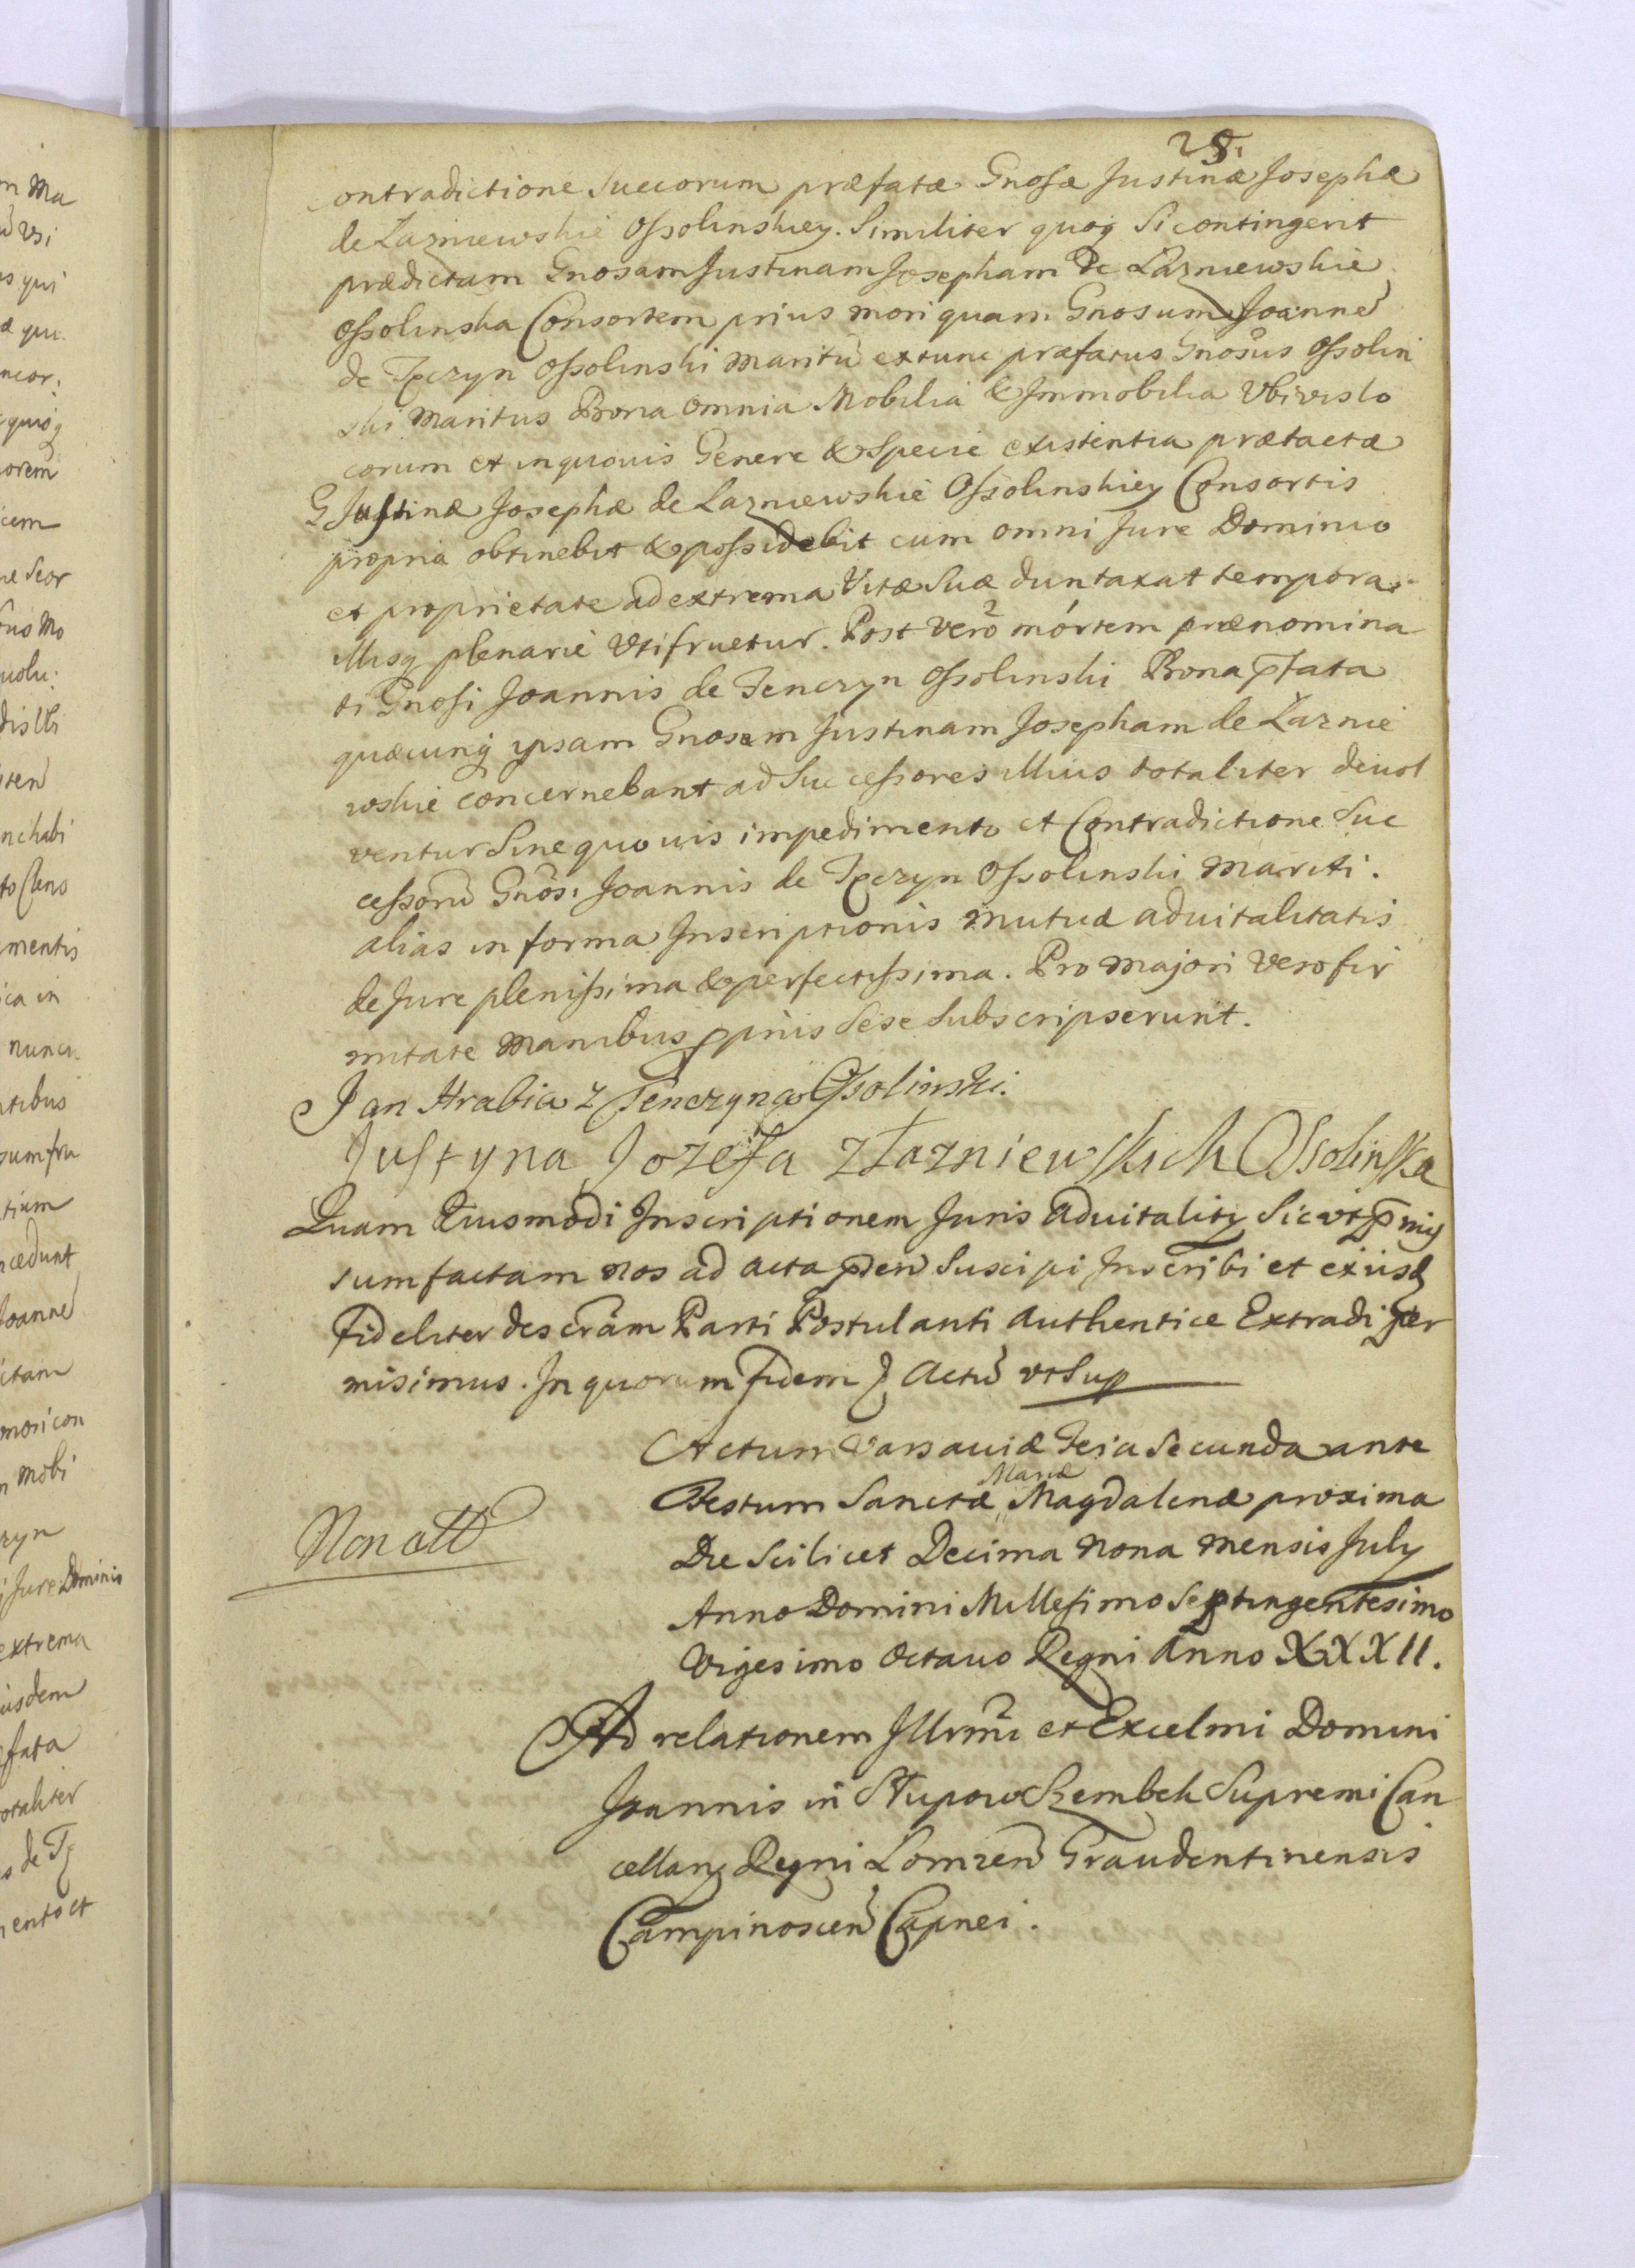 28.
contradictione Succorum præfatæ Gnosæ Justinæ Josephæ
de Łazniewskie Ossolinskiey. Similiter quoq Si contingerit
prædictam Gnosam Justinam Josepham De Łazniewskie
Ossolinska Consortem prius mori quam Gnosum Joanne
de Tęczyn Ossolinski Maritū extunc præfatus Gnosus Ossolin
ski Maritus Bona omnia Mobilia & Immobilia Ubivis lo
corum et in quouis Genere & Specie existentia prætactæ
G Justinæ Josephæ de Łazniewskie Ossolinskiey Consortis
propria obtinebit & possidebit cum omni Jure Dominio
et proprietate ad extrema Vitæ Suæ duntaxat tempora
illisq plenarie Utifruetur. Post verò mórtem prænomina
ti Gnosi Joannis de Tenczyn Ossolinski Bona pfata
quæcunq ipsam Gnosam Justinam Josepham de Łaznie
wskie concernebant ad Successores illius totaliter devol
ventur Sine quouis impedimento et Contradictione Suc
cessorū Gnōsi Joannis de Tęczyn Ossolinski Mariti.
alias in forma Inscriptionis mutuæ aduitalitatis
de Jure plenissima & perfectissima. Pro majori vero fir
mitate manibus ppriis Sese Subscripserunt.
Jan Hrabia z Tenczyna Ossolinski.
Justyna Jozefa z Łazniewskich Ossolinska
Quam Eiusmodi Inscriptionem Juris aduitality Sic ut pmis
sum factam nos ad acta pden Suscipi Inscribi et exiisd
fideliter descrām Parti Postulanti Authentice Extradi per
misimus. In quorum fidem & Actū ut Sup
Actum Varsauiæ Feria Secunda ante
Festum Sanctæ Mariæ Magdalenæ proxima
Die Scilicet Decima Nona mensis July
Anno Domini Millesimo Septingentesimo
Vigesimo Octavo Regni Anno XXXII.
Non att
Ad relationem Illrmi et Excelmi Domini
Joannis in Słupow Szembek Supremi Can
cellary Regni Lomzen Graudentinensis
Campinoscen Capnei.